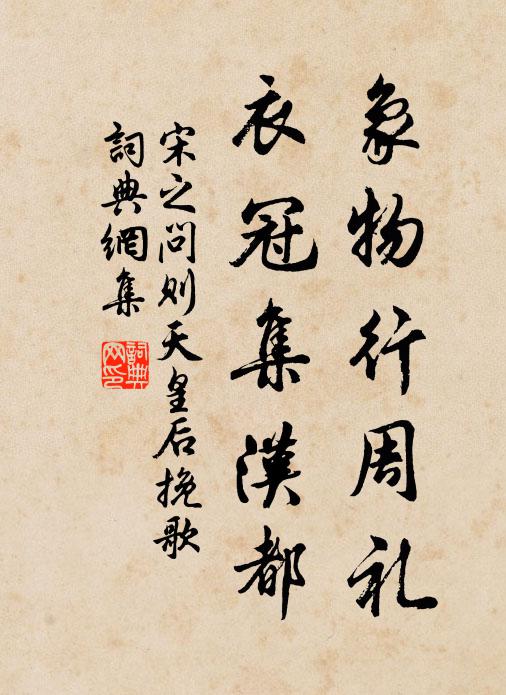 象物行周礼
衣冠集漢都
宋之问则天皇后挽歌
詞典網集
詞典网印